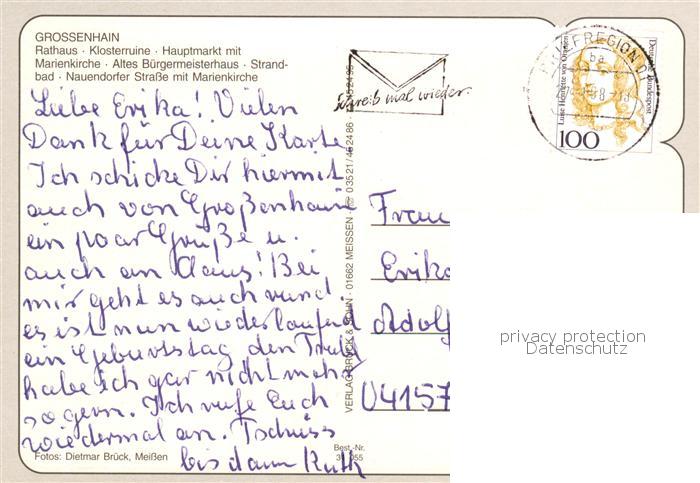 GROSSENHAIN
Rathaus · Klosterruine · Hauptmarkt mit
Marienkirche · Altes Bürgermeisterhaus · Strand-
bad · Nauendorfer Straße mit Marienkirche
Liebe Erika! Vielen
Dank für Deine Karte
Ich schicke Dir hiermit
auch von Großenhain
ein paar Grüße u.
auch an Claus! Bei
mir geht es auch rund.
es ist nun wieder laufend
ein Geburtstag den Trubel
habe ich gar nicht mehr
so gern. Ich rufe Euch
wiedermal an. Tschüss
bis dann Ruth
Fotos: Dietmar Brück, Meißen
Best.-Nr.
VERLAG BRÜCK & SOHN · 01662 MEISSEN
schreib mal wieder
BRIEFREGION
ba
Luise Henriette von Oranien
Deutsche Bundespost
100
Frau
Erika
Adolf
04157
privacy protection
Datenschutz